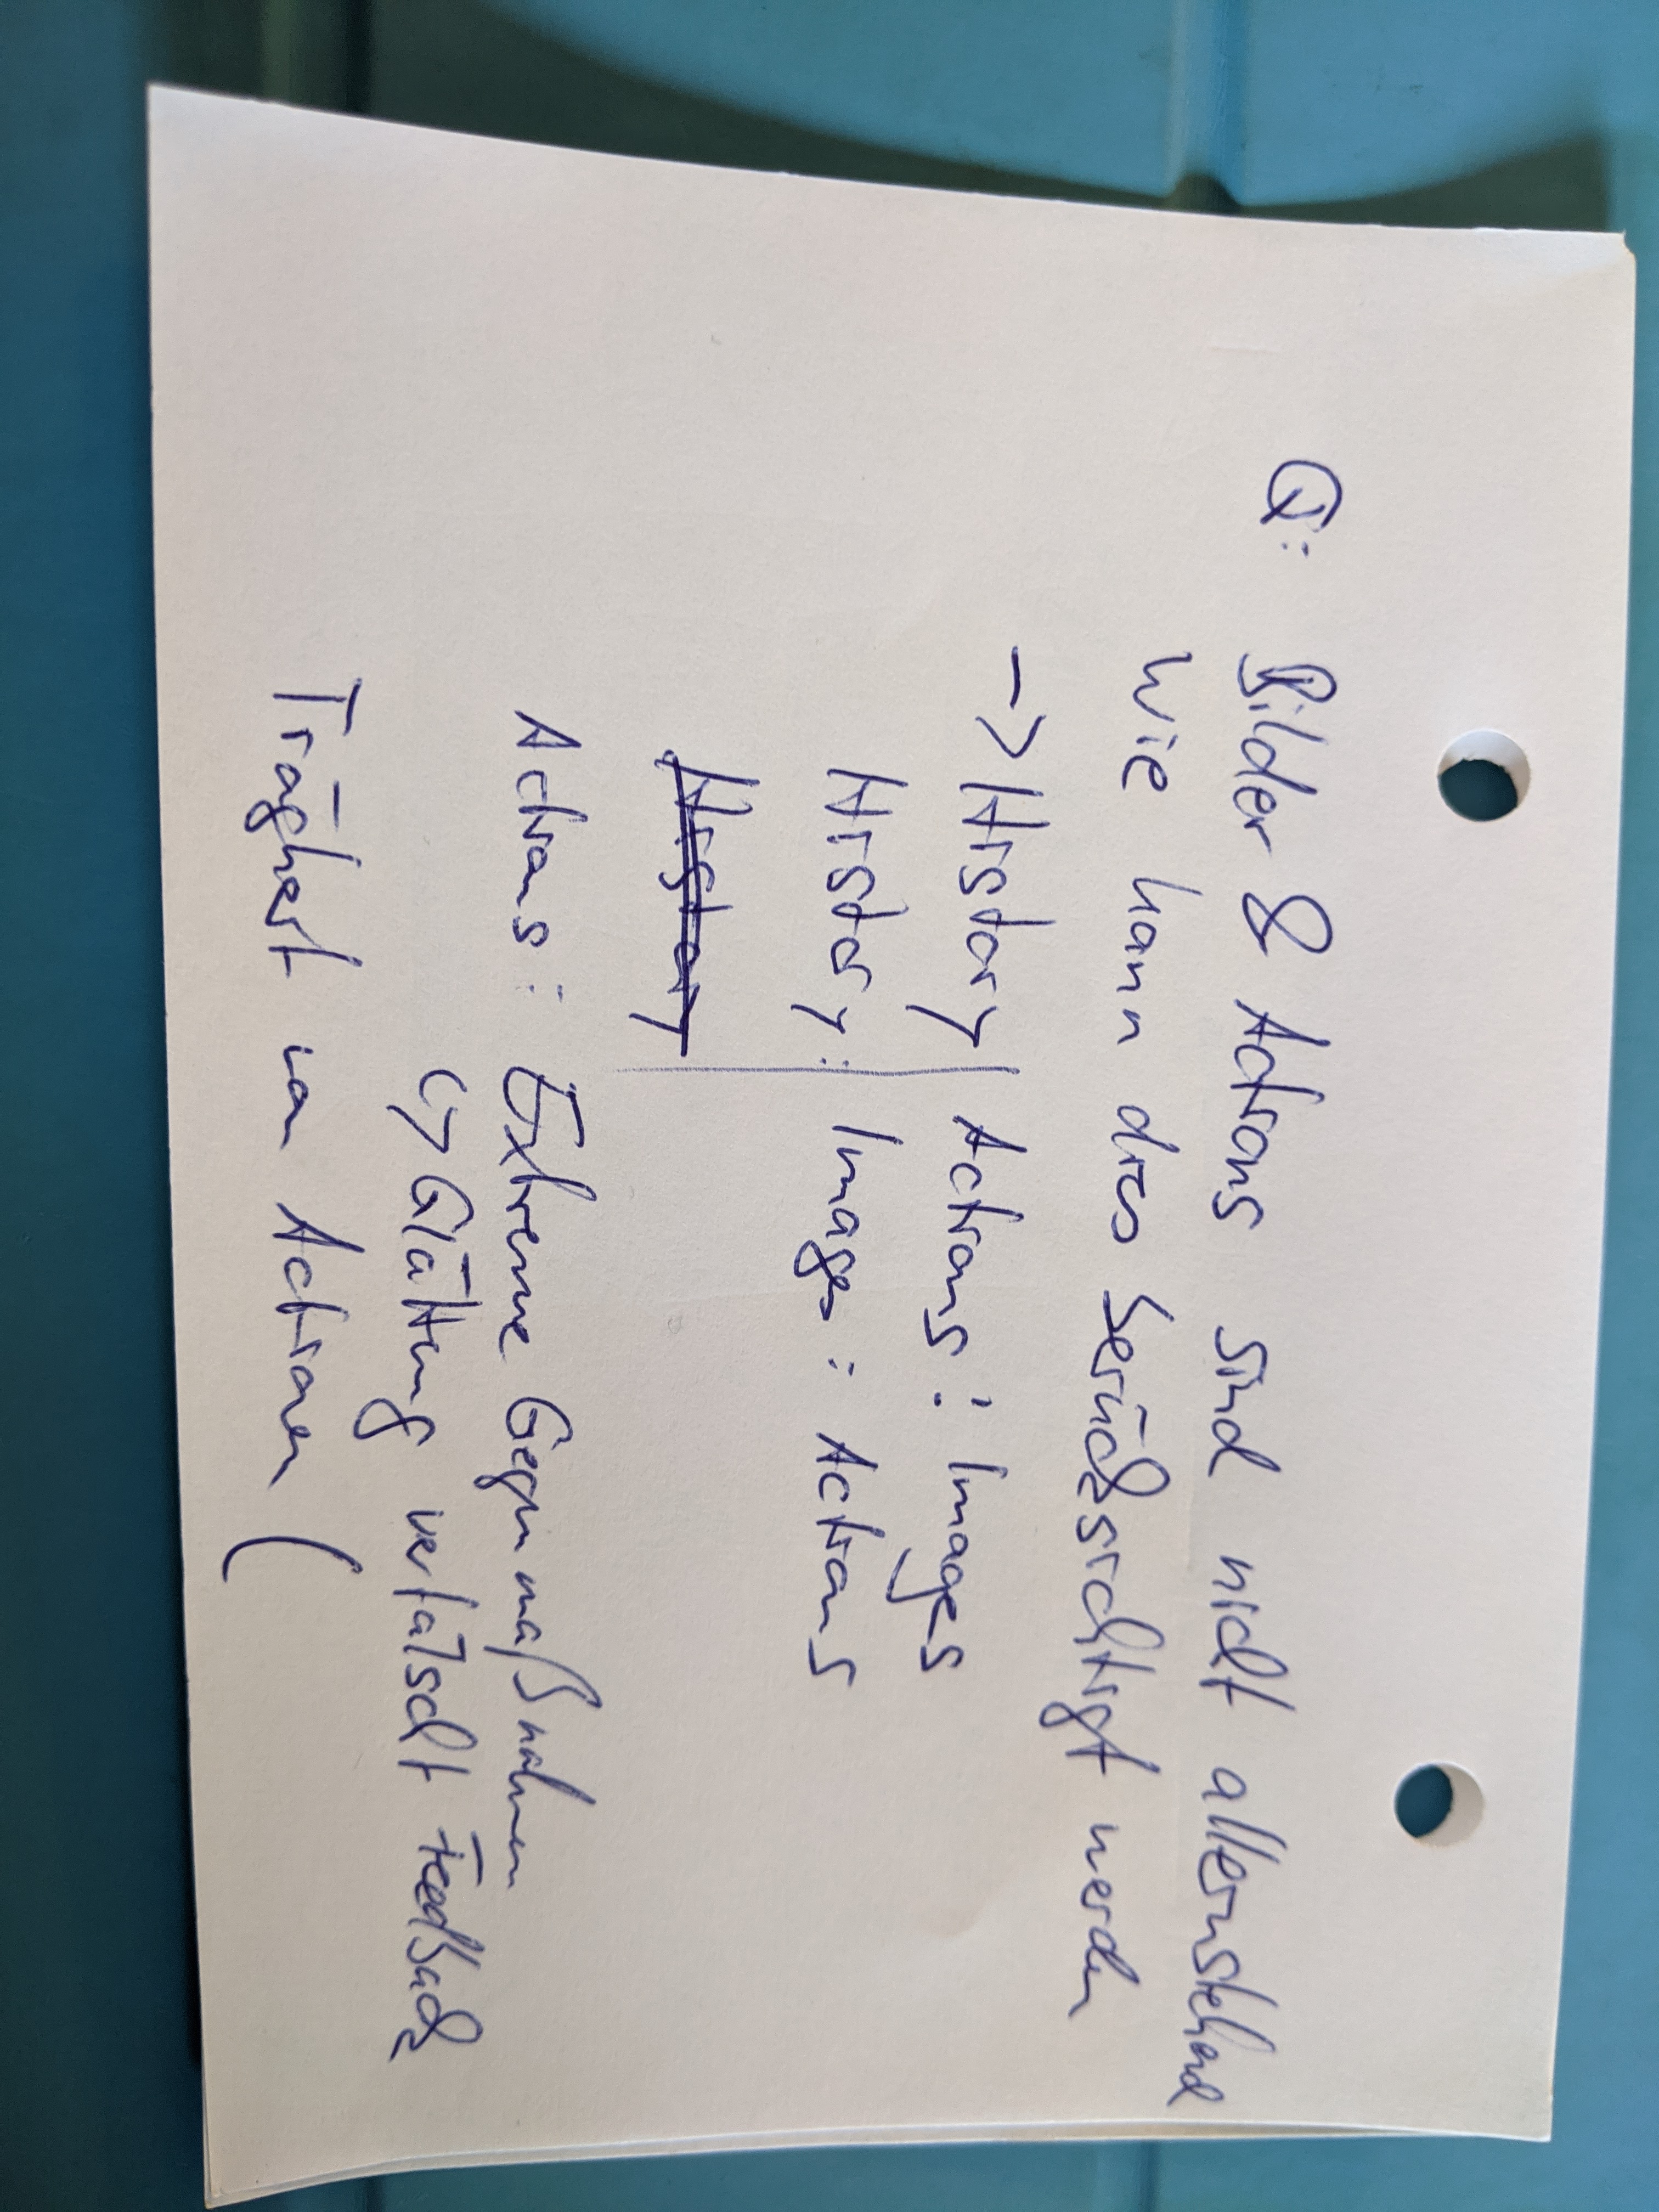 Q: Bilder & Actions sind nicht alleinstehend
Wie kann dies berücksichtigt werden
-> History | Actions : Images
History : Images : Actions
History
Actions : Extreme Gegenmaßnahmen
↳ Glättung verfälscht Feedback
Trägheit von Actionen (